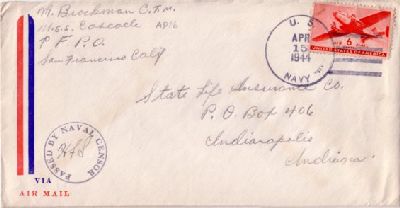 M. Brockman C.T.M.
U.S.S. Cascade AD16
F. P. O.
San Francisco Calif
U. S.
APR
15
1944
NAVY
6
UNITED STATES OF AMERICA
State Life Insurance Co.
P. O. Box 406
Indianapolis
Indiana
PASSED BY NAVAL CENSOR
VIA
AIR MAIL